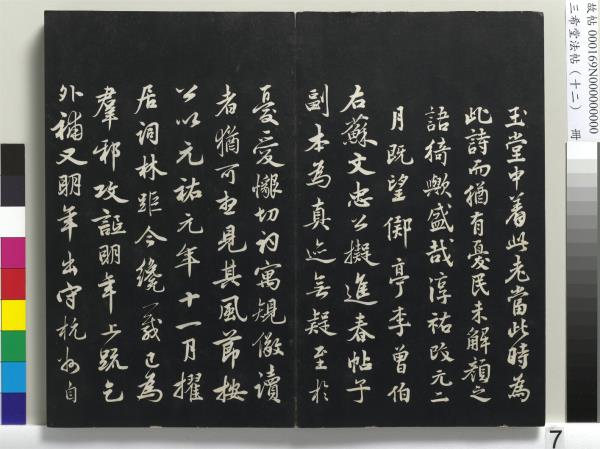 玉堂中著此老當此時為
此詩而猶有憂民未解顏之
語猗歟盛哉淳祐改元二
月既望鄮亭李曾伯
右蘇文忠公擬進春帖子
副本為真迹無疑至於
憂愛懺切初寓規儆讀
者猶可想見其風節按
公以元祐元年十一月擢
居詞林距今纔一歲已為
羣邪攻詆明年上疏乞
外補又明年出守杭州自
故帖 000169N000000000
三希堂法帖（十二） 冊
7